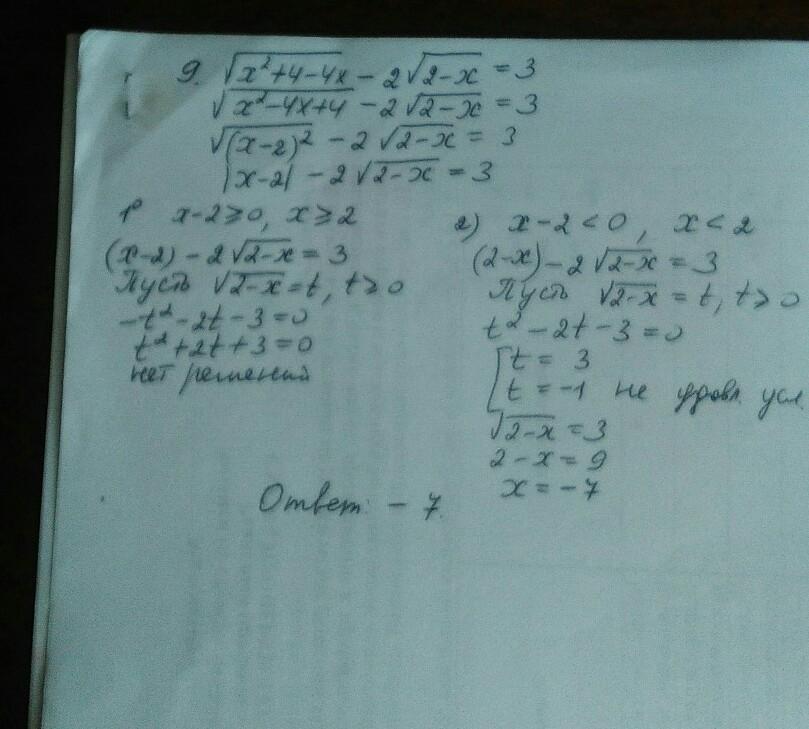 9. √(x²+4-4x) - 2√(2-x) = 3
√(x²-4x+4) - 2√(2-x) = 3
√((x-2)²) - 2√(2-x) = 3
|x-2| - 2√(2-x) = 3
x-2≥0, x≥2
(x-2) - 2√(2-x) = 3
Пусть √(2-x) = t, t≥0
-t²-2t-3=0
t²+2t+3=0
нет решений
2) x-2<0, x<2
(2-x) - 2√(2-x) = 3
Пусть √(2-x) = t, t>0
t²-2t-3=0
[t = 3
t = -1 не удовл. усл.
√(2-x) = 3
2-x = 9
x = -7
Ответ: -7.